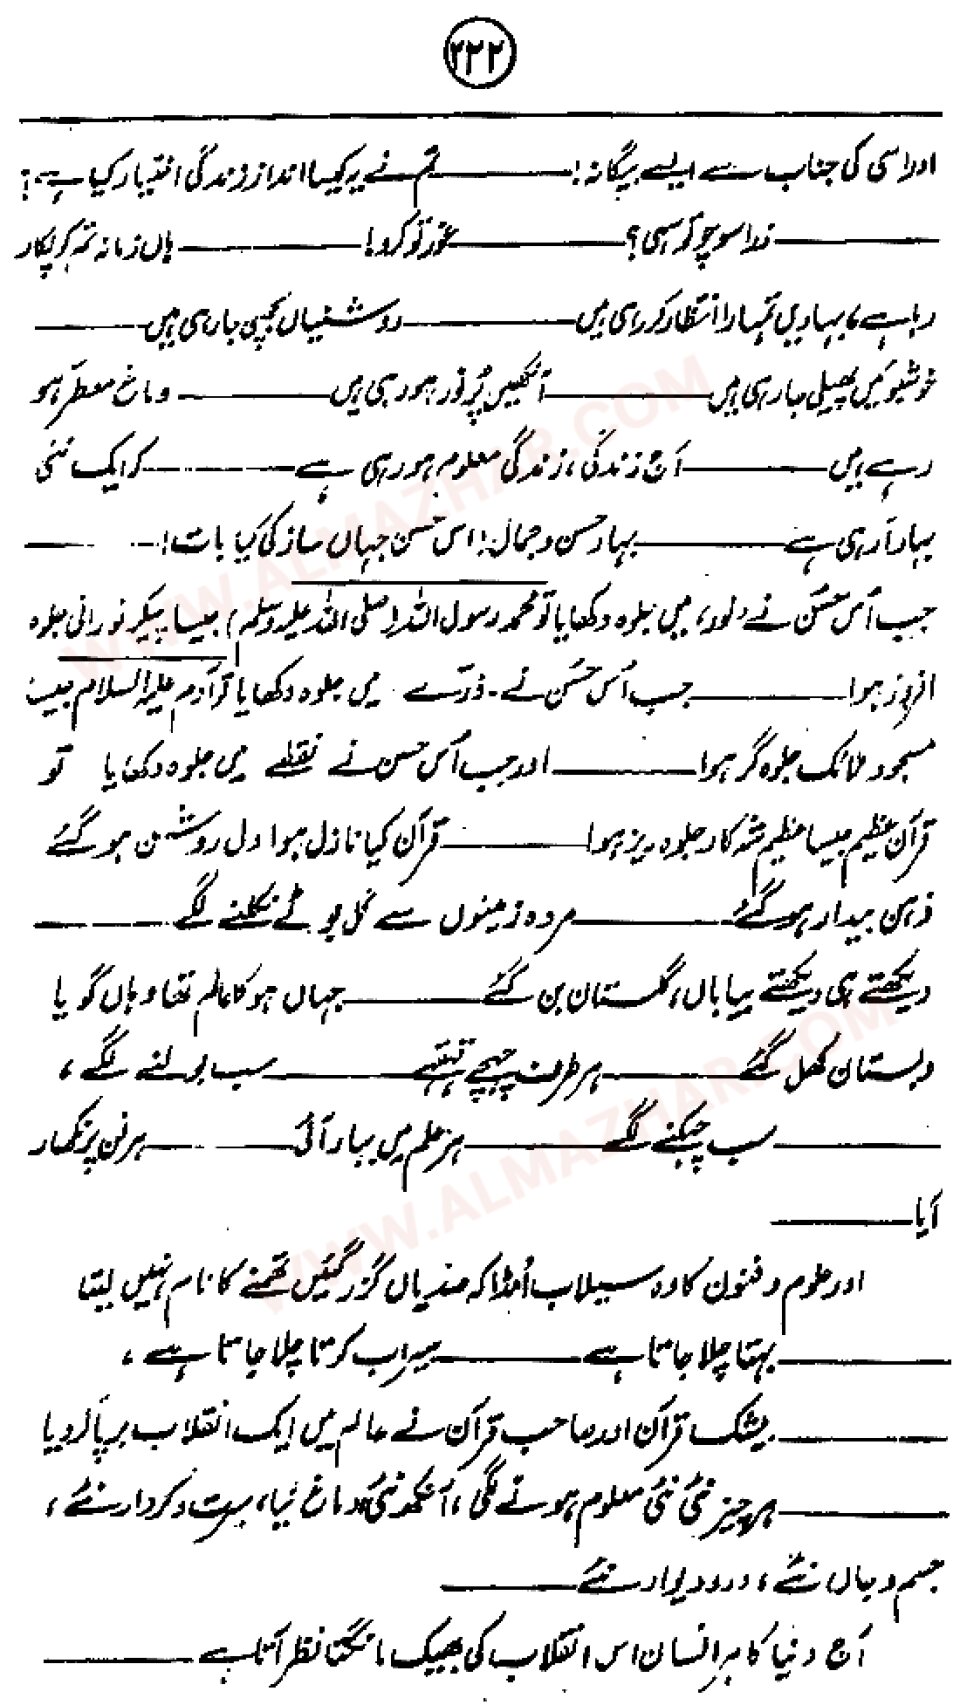 ۲۲۲
اور اسی کی جناب سے ایسے بیگانہ! ——— تم نے یہ کیسا اندازِ زندگی اختیار کیا ہے؟
——— ذرا سوچو تو سہی؟ ——— غور تو کرو! ——— ہاں زمانہ تم کو پکار
رہا ہے، بہاریں تمہارا انتظار کر رہی ہیں ——— روشنیاں بجھی جا رہی ہیں ———
خوشبوئیں پھیلی جا رہی ہیں ——— آنکھیں پُر نور ہو رہی ہیں ——— دماغ معطر ہو
رہے ہیں ——— آج زندگی، زندگی معلوم ہو رہی ہے ——— کہ ایک نئی
بہار آ رہی ہے ——— بہارِ حسن و جمال! اس حسن جہاں ساز کی کیا بات! ———
جب اُس حسن نے ’نور‘ میں جلوہ دکھایا تو محمد رسول اللہ (صلی اللہ علیہ وسلم) جیسا پیکر نورانی جلوہ
افروز ہوا ——— جب اُس حُسن نے ۔ ذرّے میں جلوہ دکھایا تو آدم علیہ السلام جیسا
مسجود ملائک جلوہ گر ہوا ——— اور جب اُس حسن نے نقطے میں جلوہ دکھایا تو
قرآن عظیم جیسا عظیم شہکار جلوہ ریز ہوا ——— قرآن کیا نازل ہوا دل روشن ہو گئے
ذہن بیدار ہو گئے ——— مردہ زمینوں سے گل بوٹے نکلنے لگے ———
دیکھتے ہی دیکھتے بیاباں، گلستان بن گئے ——— جہاں ہو کا عالم تھا وہاں گویا
دبستان کھل گئے ——— ہر طرف چہچہے قہقہے ——— سب بولنے لگے،
——— سب چہکنے لگے ——— ہر علم میں بہار آئی ——— ہر فن پر نکھار
آیا ———
اور علوم و فنون کا وہ سیلاب اُمڈا کہ صدیاں گزر گئیں تھمنے کا نام نہیں لیتا
——— بہتا چلا جاتا ہے ——— سیراب کرتا چلا جاتا ہے،
——— بیشک قرآن اور صاحب قرآن نے عالم میں ایک انقلاب برپا کر دیا
——— ہر چیز نئی نئی معلوم ہونے لگی، آنکھ نئی، دماغ نیا، سیرت و کردار نئے،
جسم و جاں نئے، در و دیوار نئے ———
آج دنیا کا ہر انسان اس انقلاب کی بھیک مانگتا نظر آتا ہے ———
WWW.ALMAZHAR.COM
WWW.ALMAZHAR.COM